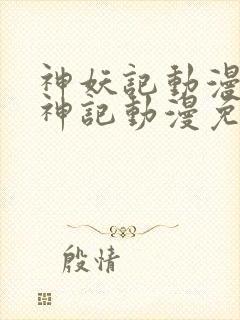 神妖記動漫
神記動漫免
殷情